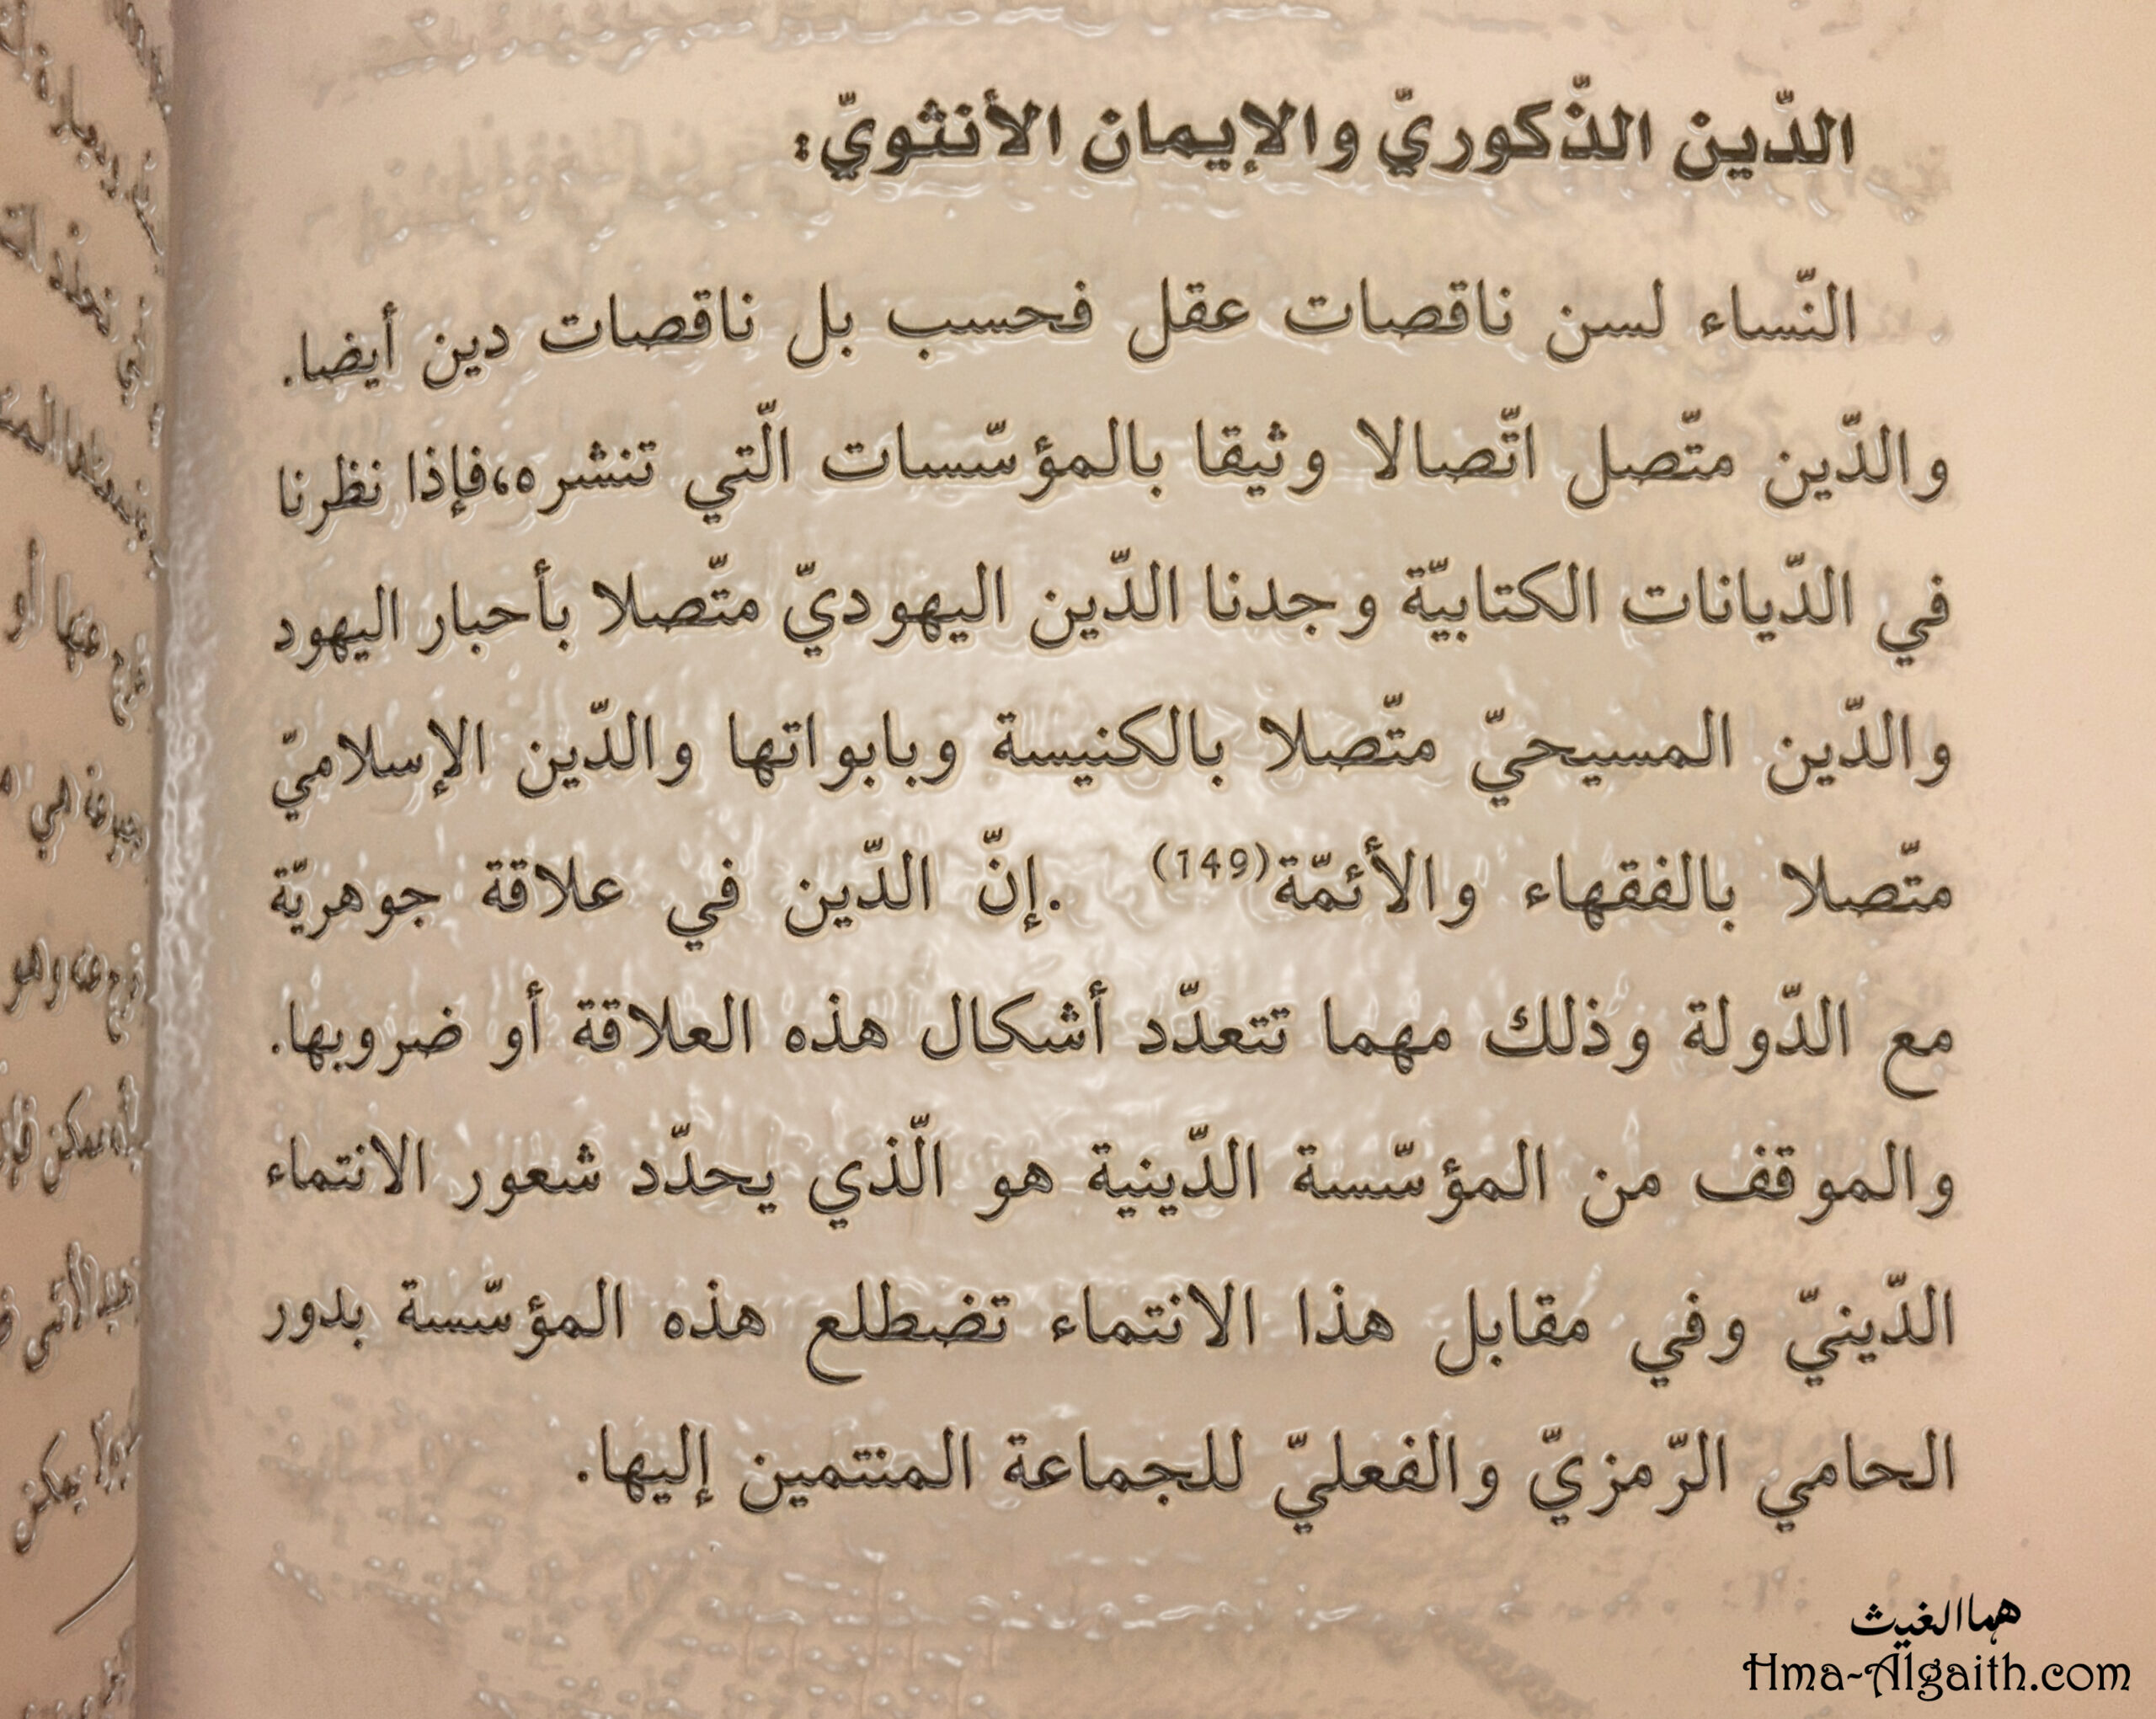 الدّين الذّكوريّ والإيمان الأنثويّ:
النّساء لسن ناقصات عقل فحسب بل ناقصات دين أيضا.
والدّين متّصل اتّصالا وثيقا بالمؤسّسات الّتي تنشره،فإذا نظرنا
في الدّيانات الكتابيّة وجدنا الدّين اليهوديّ متّصلا بأحبار اليهود
والدّين المسيحيّ متّصلا بالكنيسة وبابواتها والدّين الإسلاميّ
متّصلا بالفقهاء والأئمّة(149) .إنّ الدّين في علاقة جوهريّة
مع الدّولة وذلك مهما تتعدّد أشكال هذه العلاقة أو ضروبها.
والموقف من المؤسّسة الدّينية هو الّذي يحدّد شعور الانتماء
الدّينيّ وفي مقابل هذا الانتماء تضطلع هذه المؤسّسة بدور
الحامي الرّمزيّ والفعليّ للجماعة المنتمين إليها.
هما الغيث
Hma-Algaith.com